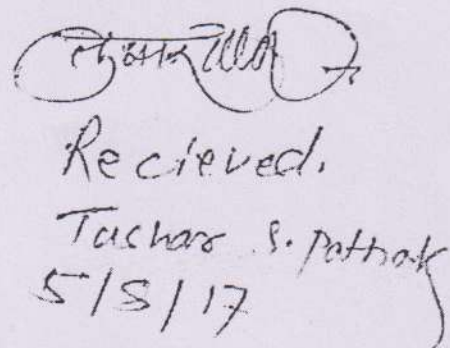 Recieved.
Tushar S. Pathak
5/8/17